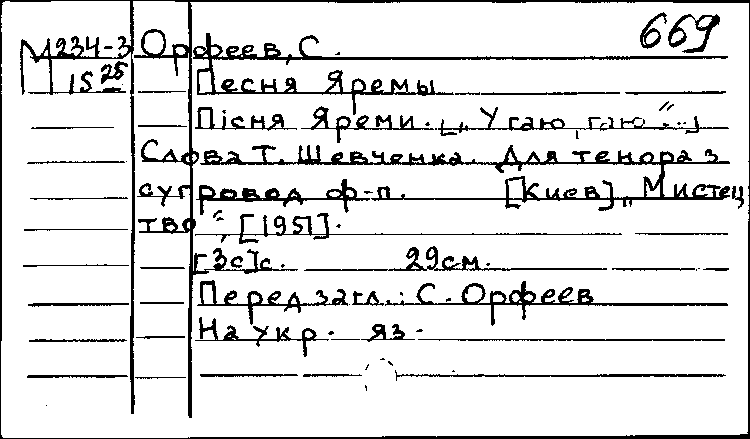 669
М234-3 Орфеев, С.
15 25 Песня Яремы
Пісня Яреми. [„У гаю, гаю“...]
Слова Т. Шевченка. Для тенора з
супровод ф-п. [Киев] „Мистец
тво“, [1951].
[3с]с. 29см.
Перед загл.: С. Орфеев
На укр. яз.